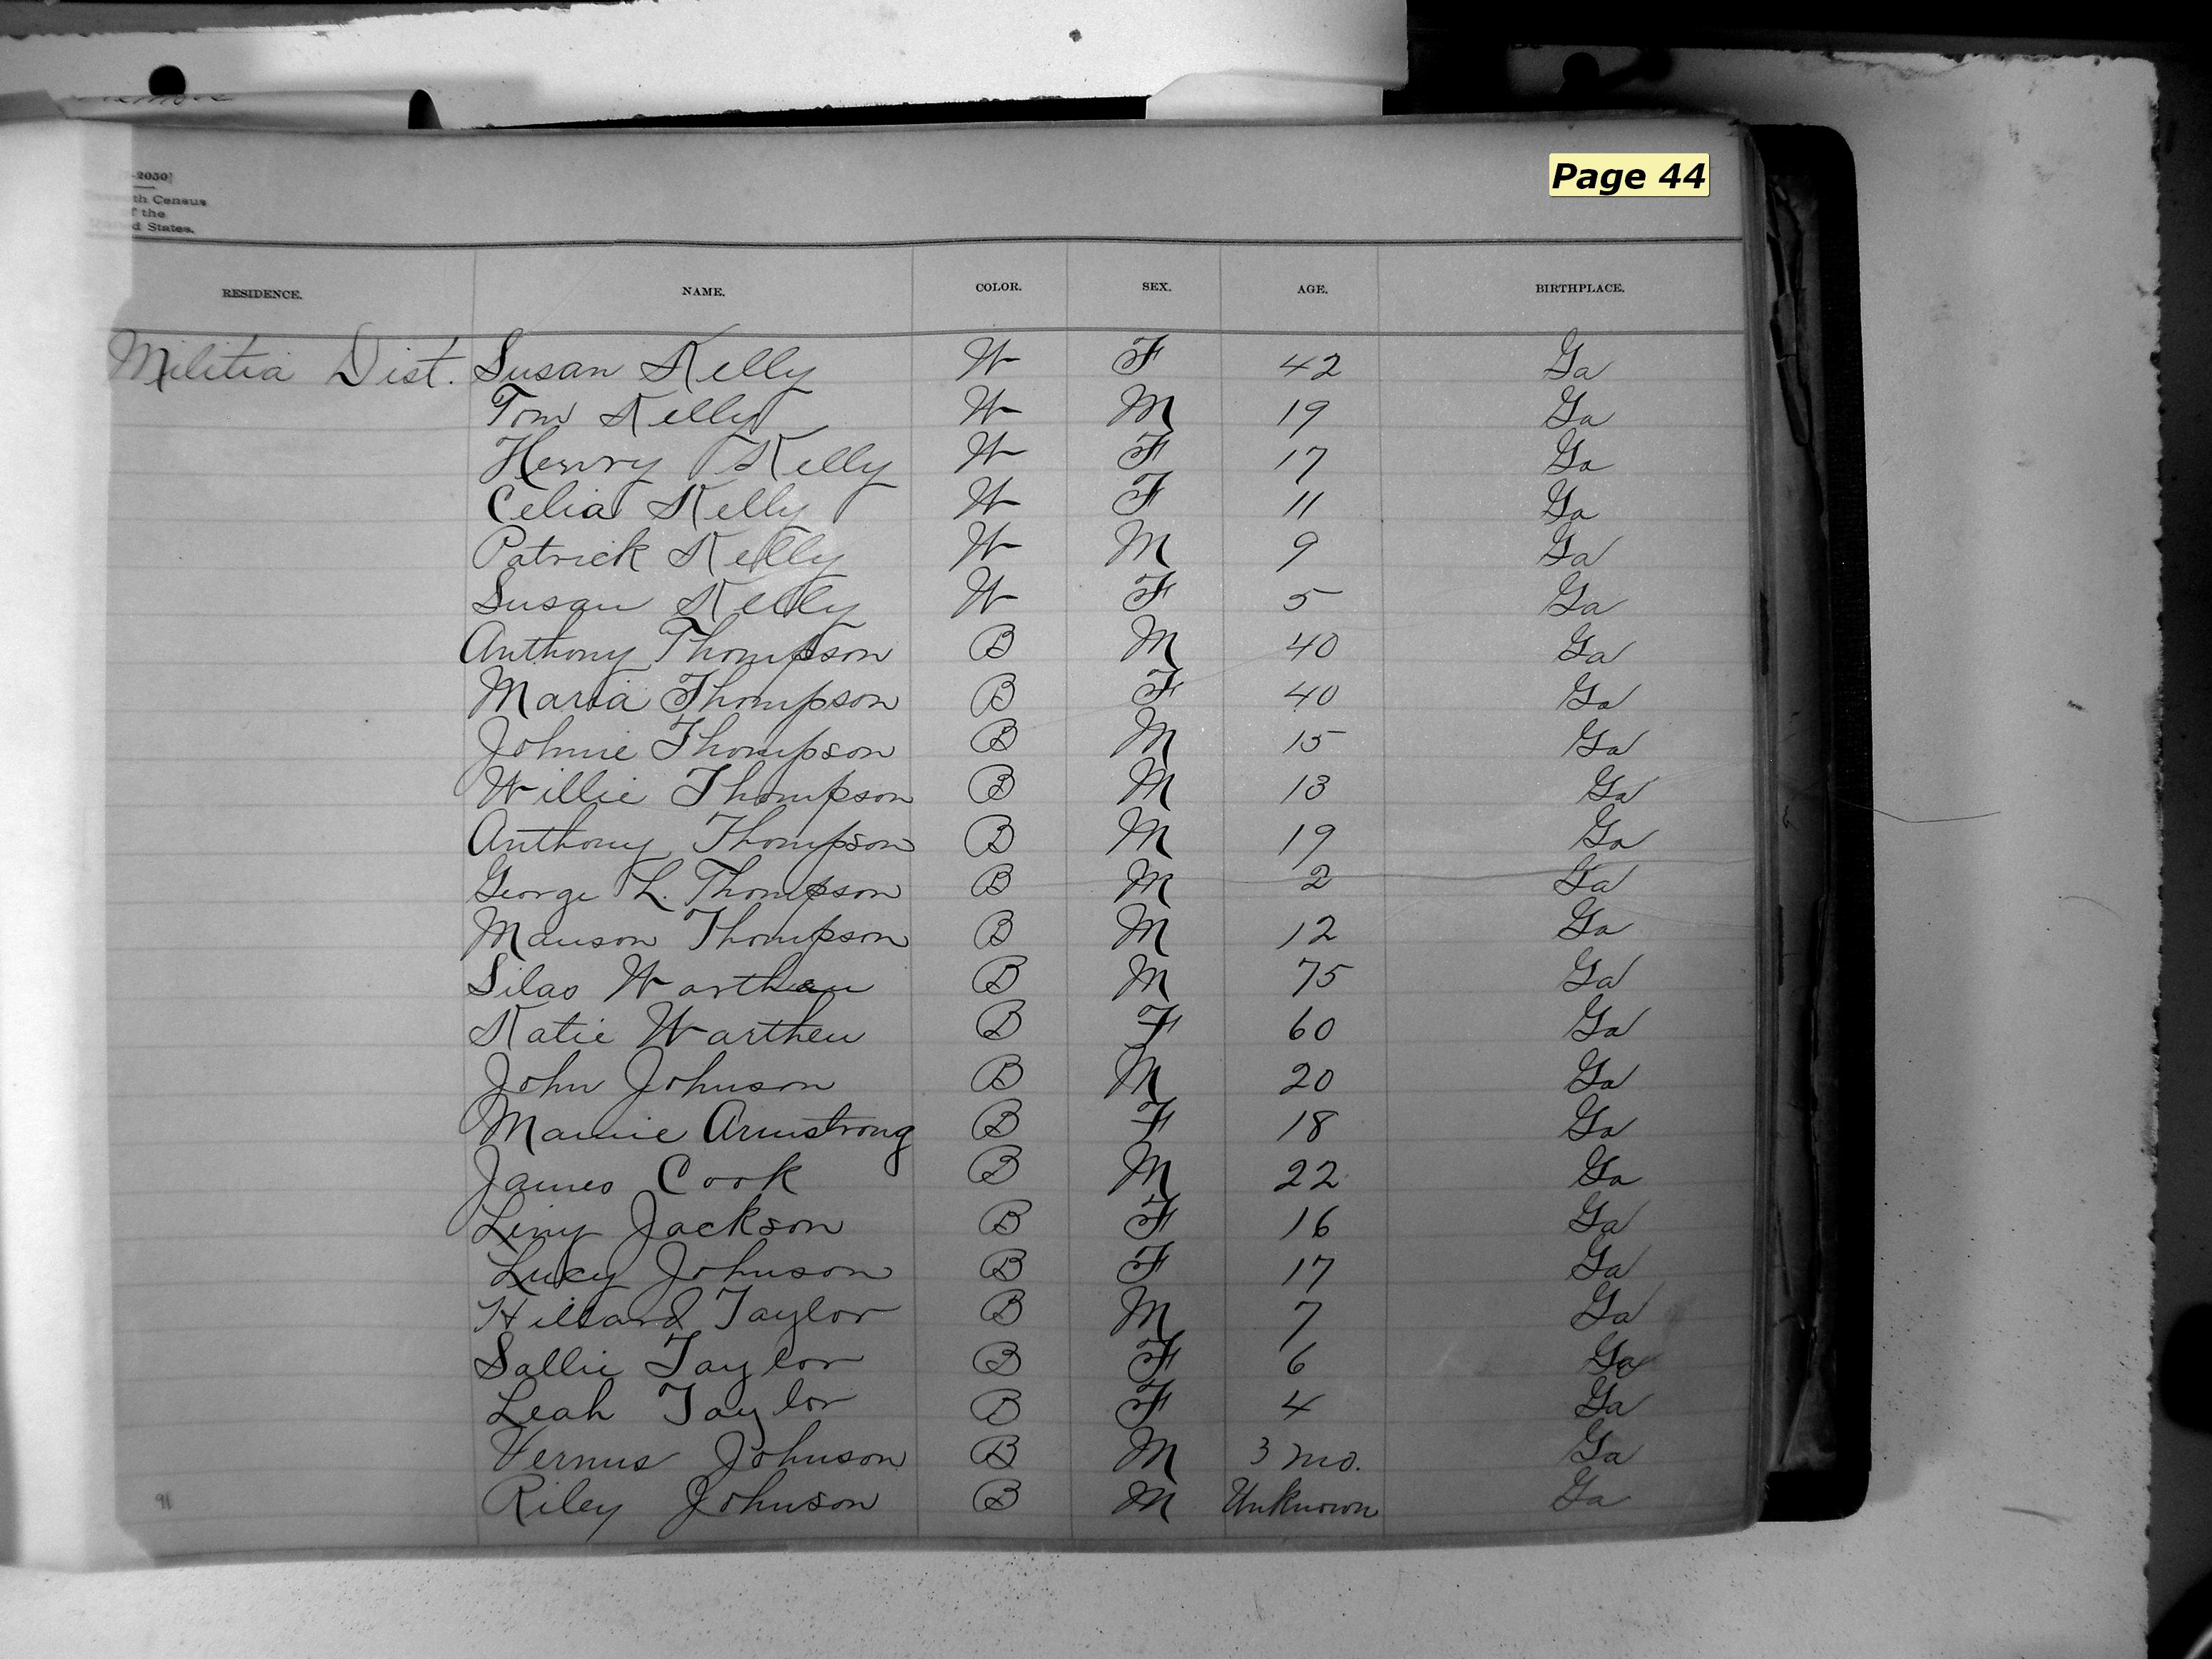 Page 44
-2050]
th Census
f the
d States.
RESIDENCE. NAME. COLOR. SEX. AGE. BIRTHPLACE.
Militia Dist. Susan Kelly W F 42 Ga
Tom Kelly W M 19 Ga
Henry Kelly W F 17 Ga
Celia Kelly W F 11 Ga
Patrick Kelly W M 9 Ga
Susan Kelly W F 5 Ga
Anthony Thompson B M 40 Ga
Maria Thompson B F 40 Ga
Johnie Thompson B M 15 Ga
Willie Thompson B M 13 Ga
Anthony Thompson B M 19 Ga
George L. Thompson B M 2 Ga
Manson Thompson B M 12 Ga
Silas Warthen B M 75 Ga
Katie Warthen B F 60 Ga
John Johnson B M 20 Ga
Mamie Armstrong B F 18 Ga
James Cook B M 22 Ga
Liny Jackson B F 16 Ga
Lucy Johnson B F 17 Ga
Taylor B M 7 Ga
Sallie Taylor B F 6 Ga
Leah Taylor B F 4 Ga
Vernus Johnson B M 3 mo. Ga
Riley Johnson B M Unknown Ga
91